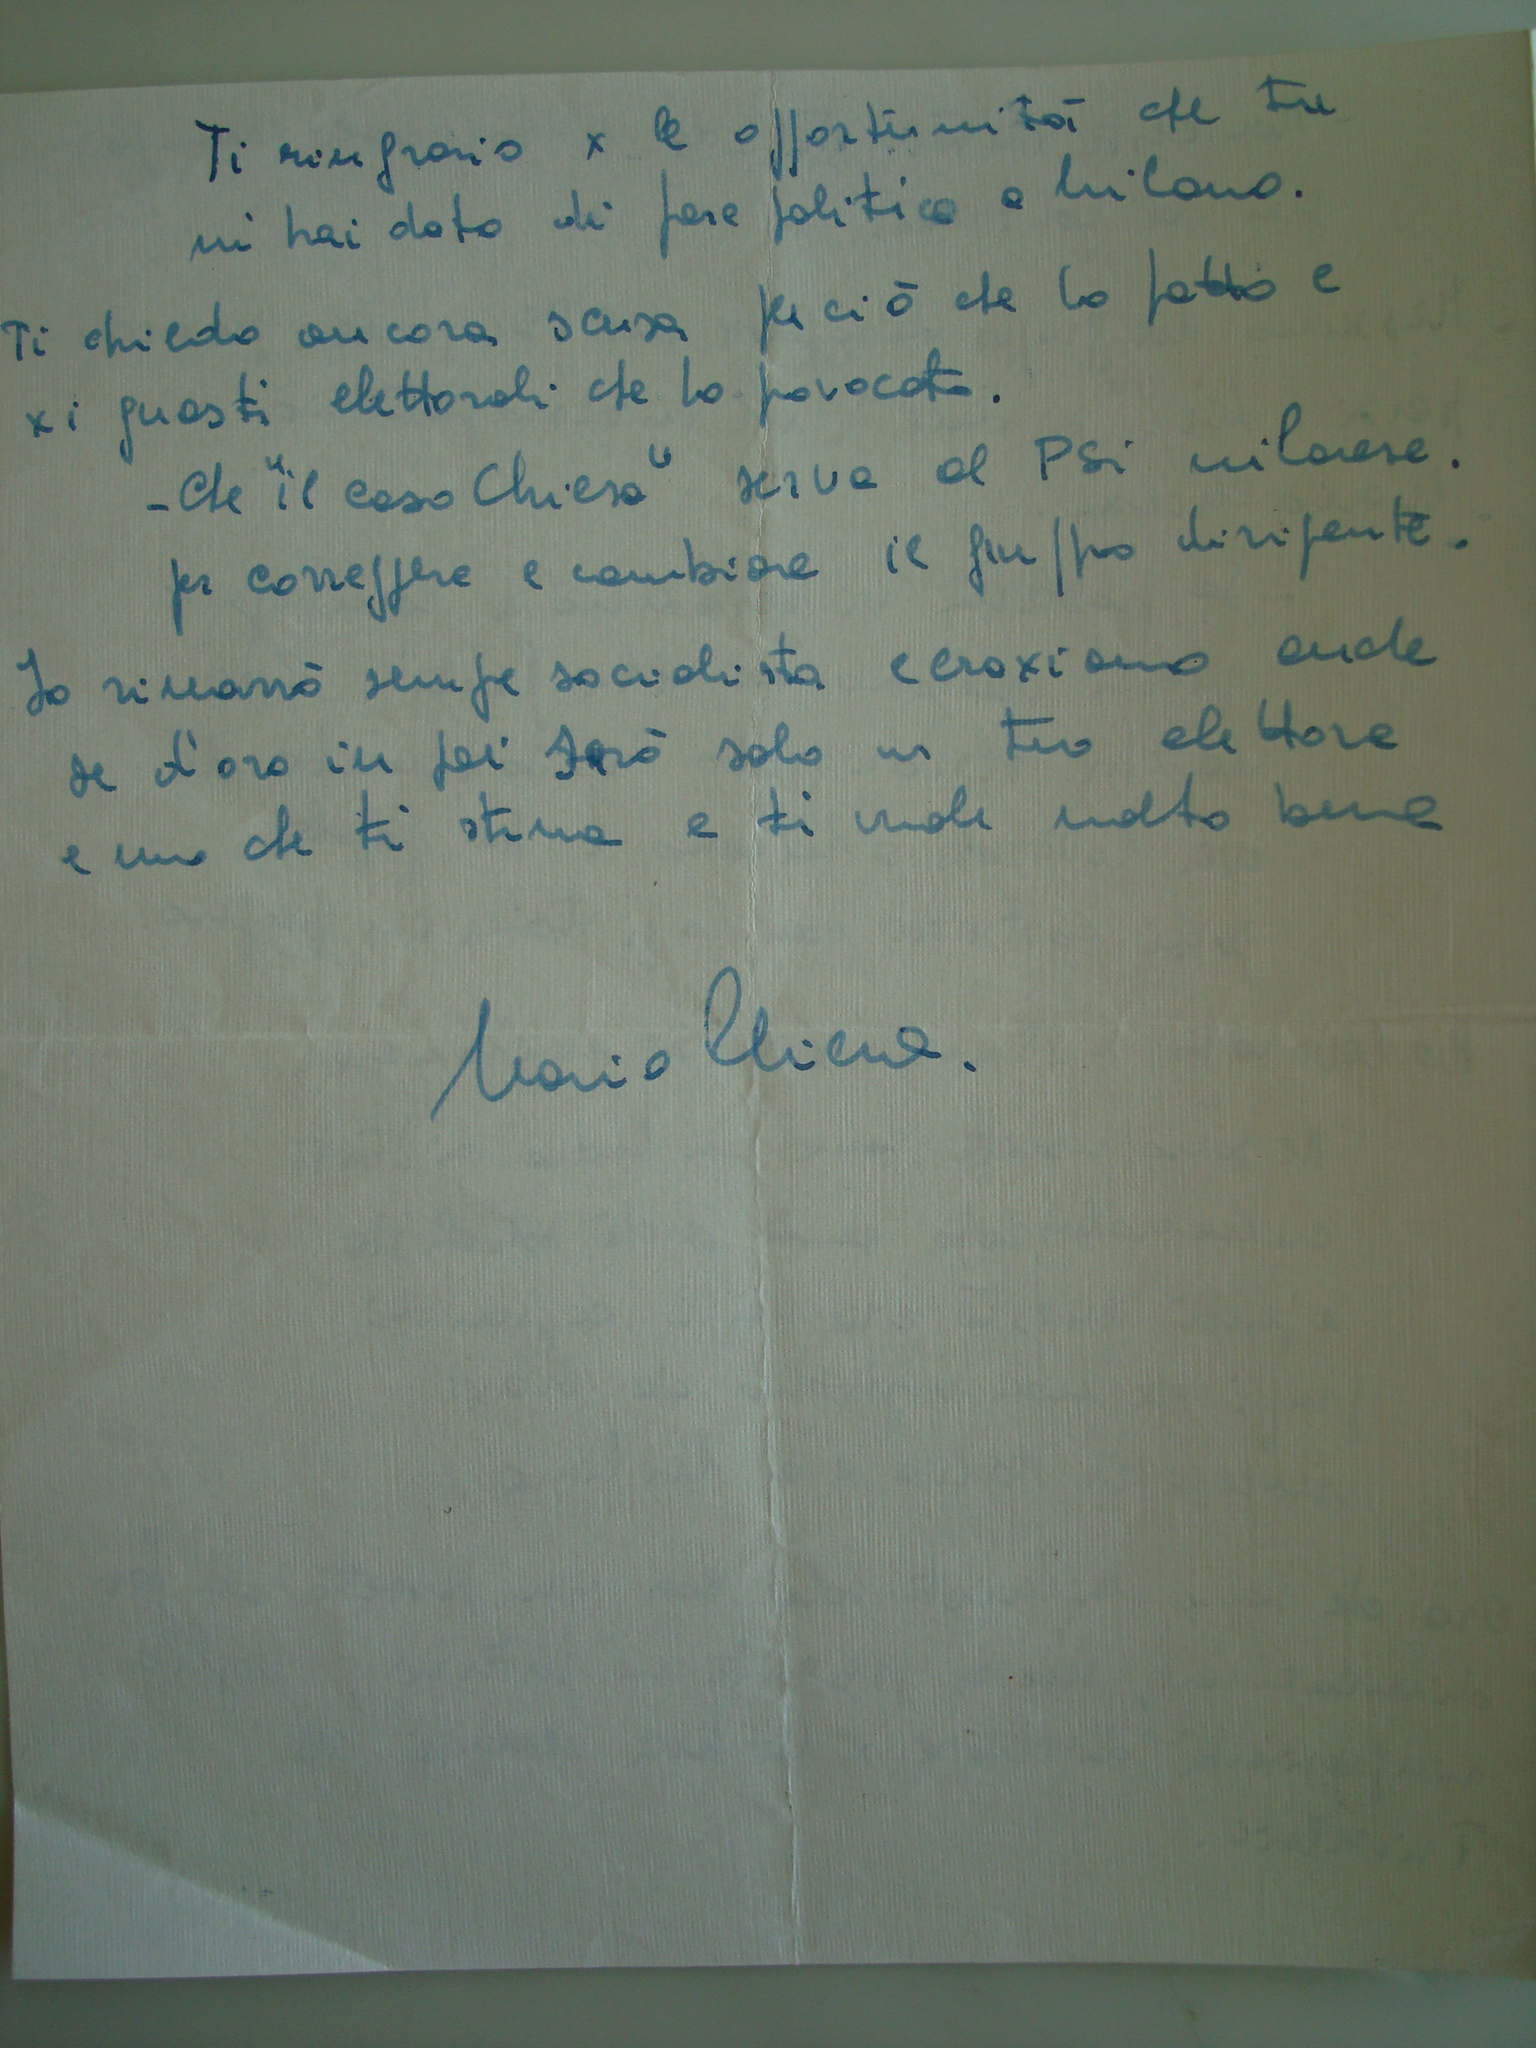 Ti ringrazio x le opportunità che tu
mi hai dato di fare politica a Milano.
Ti chiedo ancora scusa per ciò che ho fatto e
x i guasti elettorali che ho provocato.
- Che "il caso Chiesa" serva al PSi milanese.
per correggere e cambiare il gruppo dirigente.
Io rimarrò sempre socialista e craxiano anche
se d'ora in poi sarò solo un tuo elettore
e uno che ti stima e ti vuole molto bene
Mario Chiesa.